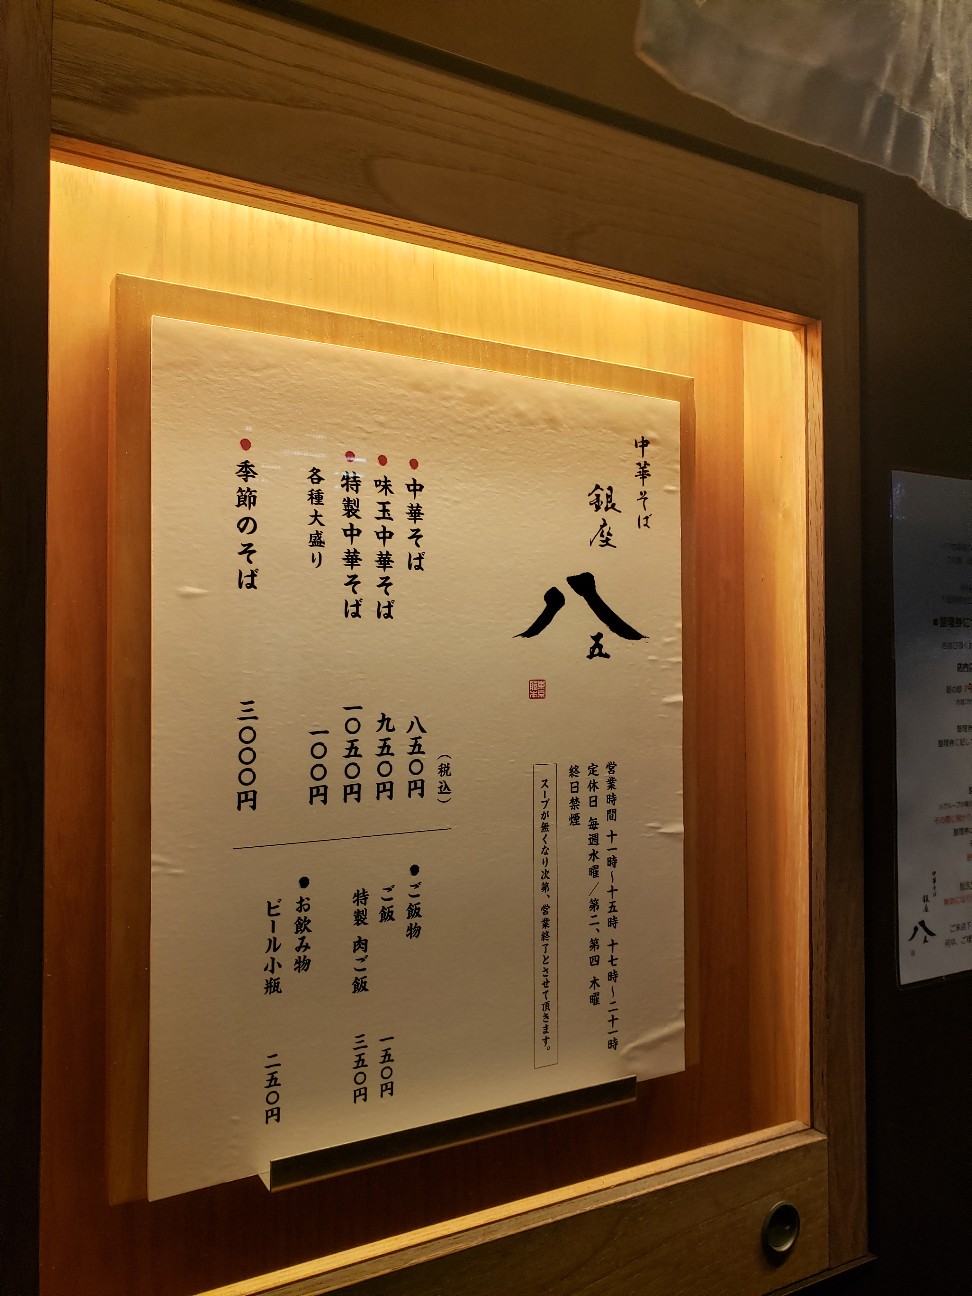 中華そば
銀座
八
五
営業時間 十一時～十五時 十七時～二十一時
定休日 毎週水曜／第二、第四 木曜
終日禁煙
スープが無くなり次第、営業終了とさせて頂きます。
（税込）
●中華そば 八五〇円
●味玉中華そば 九五〇円
●特製中華そば 一〇五〇円
各種大盛り 一〇〇円
●季節のそば 三〇〇〇円
●ご飯物
ご飯 一五〇円
特製 肉ご飯 三五〇円
●お飲み物
ビール小瓶 二五〇円
中華そば
銀座
八
五